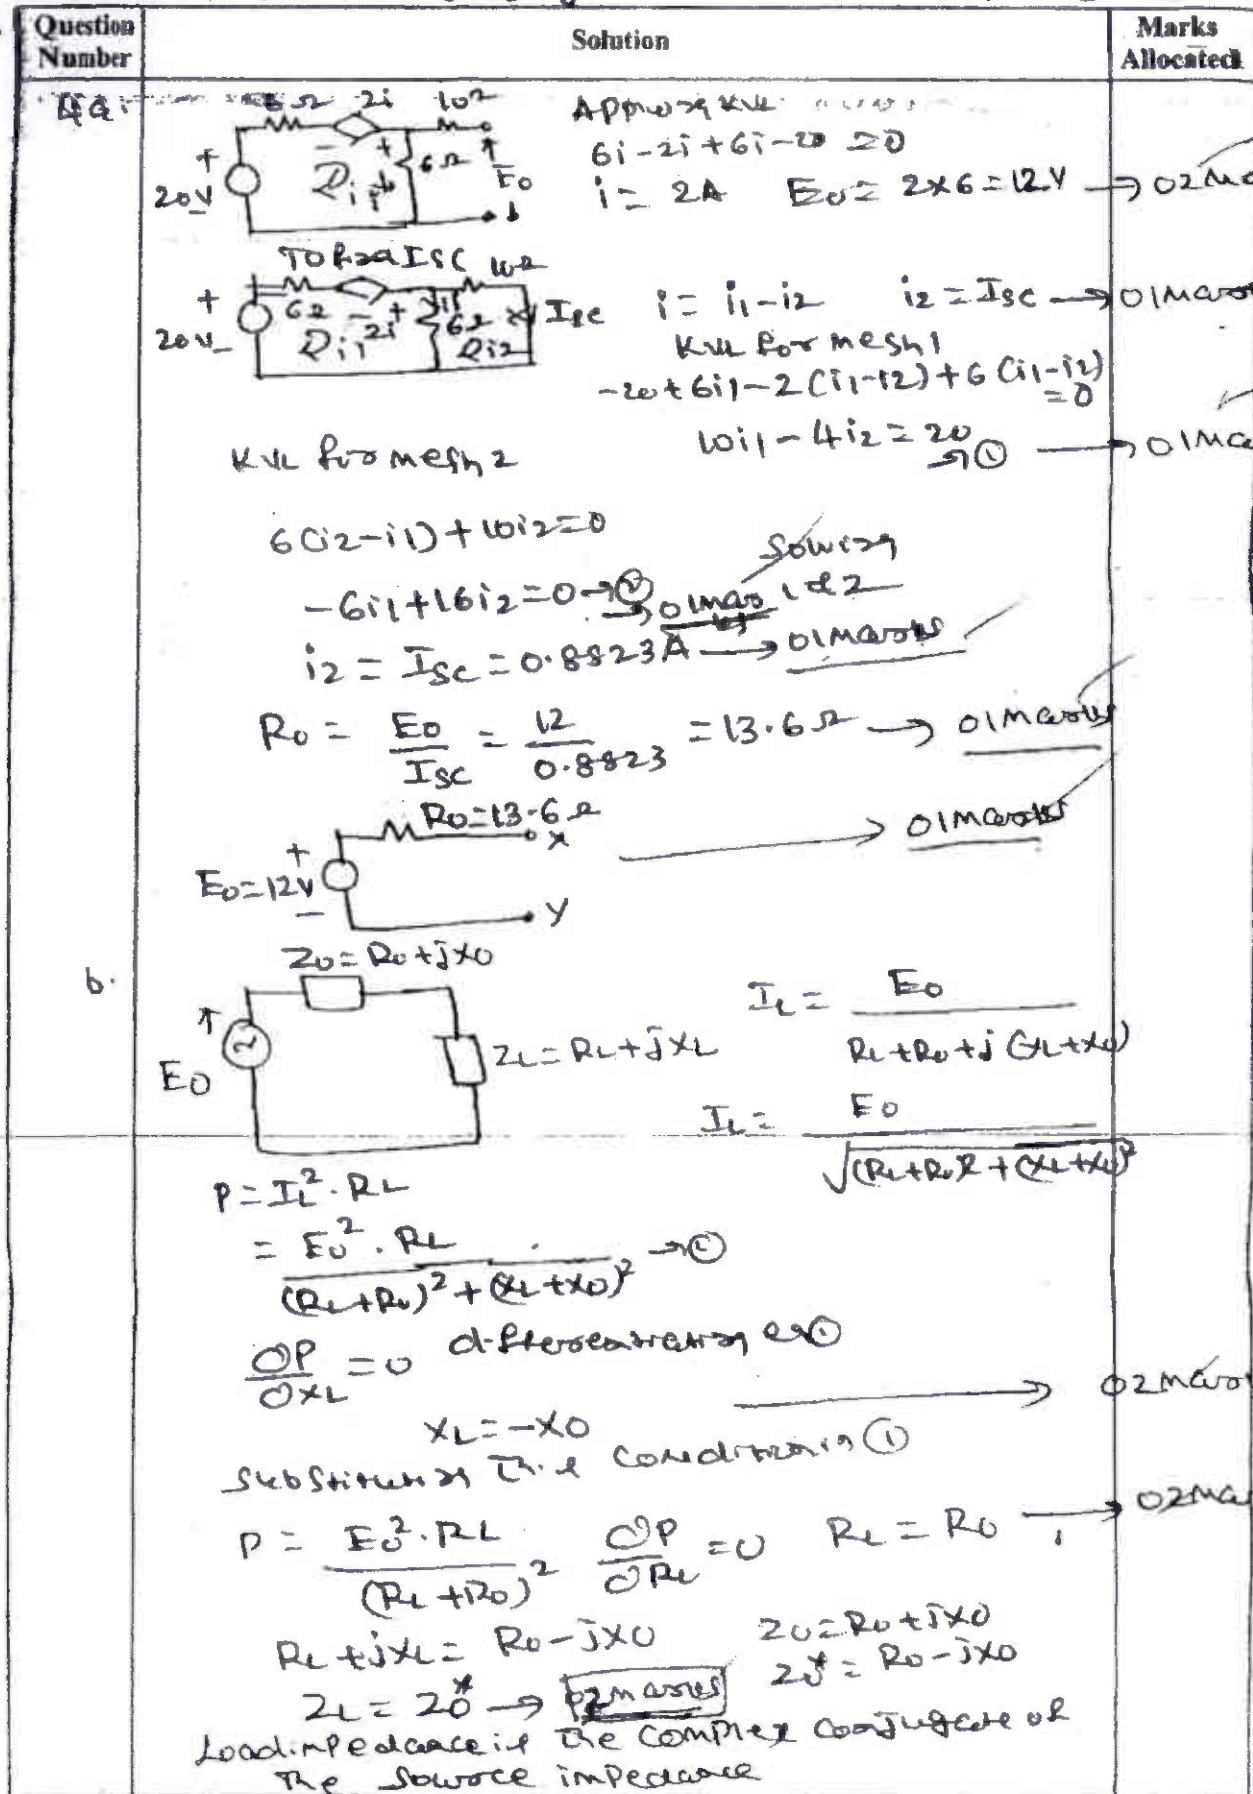 Question Number
Solution
Marks Allocated
6Ω 2i 10Ω
20V
6Ω
E0
KVL
6i-2i+6i-20=0
i = 2A E0 = 2×6 = 12V → 02
ISC 10Ω
20V 6Ω 2i 6Ω ISC
i1 i2
i = i1-i2 i2 = ISC → 01
KVL for mesh 1
-20+6i1-2(i1-i2)+6(i1-i2)
=0
10i1-4i2=20
→①
→ 01
KVL for mesh 2
6(i2-i1)+10i2=0
-6i1+16i2=0→②
1 & 2
i2 = ISC = 0.8823A → 01 Marks
R0 = E0/ISC = 12/0.8823 = 13.6Ω → 01 Marks
R0=13.6Ω
x
→ 01 Marks
E0=12V
Y
b.
Z0=R0+jX0
E0
ZL=RL+jXL
IL = E0/(RL+R0+j(XL+X0))
IL = E0/√((RL+R0)²+(XL+X0)²)
P=IL²·RL
= E0²·RL/((RL+R0)²+(XL+X0)²) →①
∂P/∂XL = 0
XL=-X0
→ 02
condition in ①
P = E0²·RL/(RL+R0)² ∂P/∂RL =0 RL = R0 → 02
RL+jXL = R0-jX0 Z0=R0+jX0
Z0* = R0-jX0
ZL = Z0* → 02 marks
Load impedance is the complex conjugate of
the source impedance